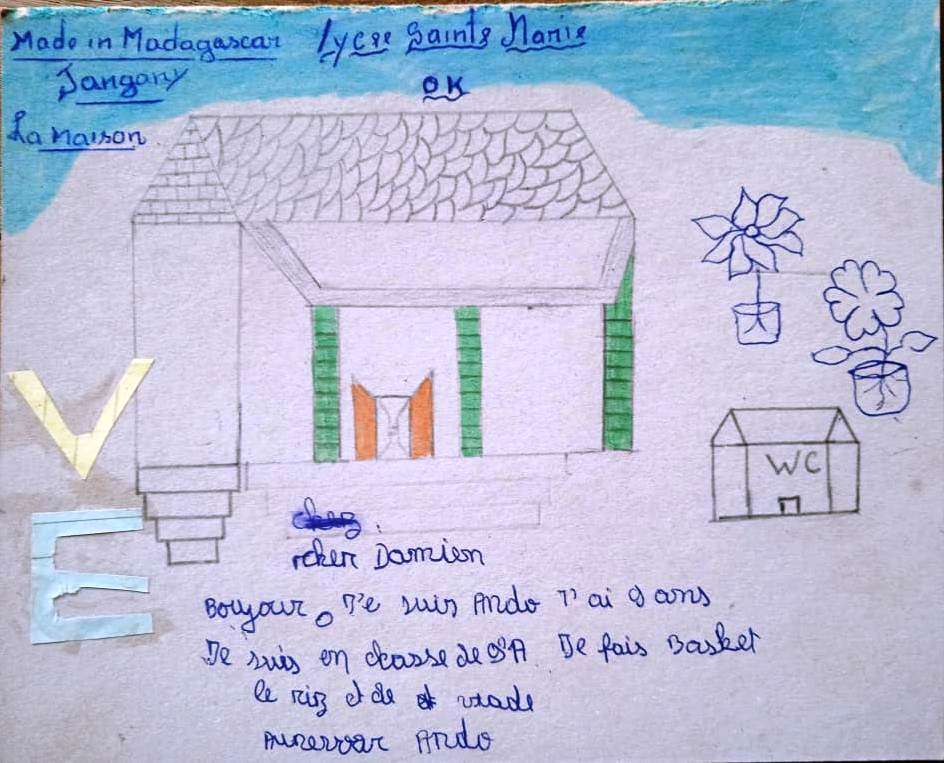 Made in Madagascar Lycee Sainte Marie
Jangany
OK
La Maison
WC
V
E
rcher Damien
Boujour, Je suis Ando J'ai 9 ans
Je suis en classe de A Je fais Basket
le riz et de viade
Aurevoar Ando